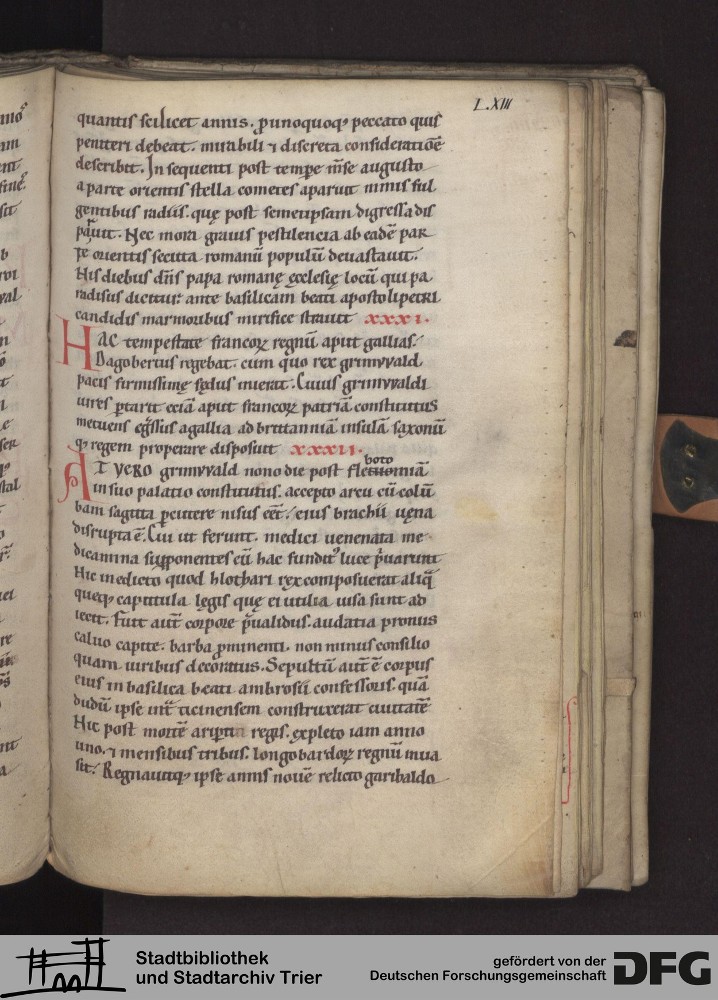 L.XIII
quantis scilicet annis. p̱ unoquoq; peccato quis
peniteri debeat. mirabili ⁊ discreta consideratiõe
describit. In sequenti post tempe mse augusto
a parte orientis stella cometes aparuit nimis ful
gentibus radiis. quę post semetipsam digressa dis
paruit. Nec mora grauis pestilencia ab eadē par
te orientis secuta romanū populū deuastauit.
His diebus dñs papa romanę ęcclesię locū qui pa
radisus dicitur ante basilicam beati apostoli petri
candidis marmoribus mirifice strauit xxxi.
Hac tempestate francoꝝ regnū aput gallias
Dagobertus regebat. cum quo rex grimuuald
pacis firmissimę fędus inierat. Cuius grimuualdi
uires ptarit eciā aput francoꝝ patriā constitutus
metuens egssus a gallia ad brittanniam insulā saxonū
q; regem properare disposuit xxxii.
At vero grimuuald nono die post flebotomiā
in suo palatio constitutus. accepto arcu cū colū
bam sagitta pcutere nisus eēt. eius brachii uęna
disrupta ē. Cui ut ferunt. medici uenenata me
dicamina supponentes eū hac funditus luce puarunt
Hic in edicto quod hlothari rex composuerat aliq
queq; capitula lęgis quę ei utilia uisa sunt ad
iecit. Fuit aut corpore pualidus. audatia primus
caluo capite. barba pminenti. non minus consilio
quam uiribus decoratus. Sepultū aut ē corpus
eius in basilica beati ambrosii confessoris. quā
dudū ipse int ticinensem construxerat ciuitatē
Hic post mortē aripti regis. expleto iam anno
uno. ⁊ mensibus tribus. longobardoꝝ regnū inua
sit. Regnauitq; ipse annis nouē relicto garibaldo
Stadtbibliothek
und Stadtarchiv Trier
gefördert von der
Deutschen Forschungsgemeinschaft
DFG